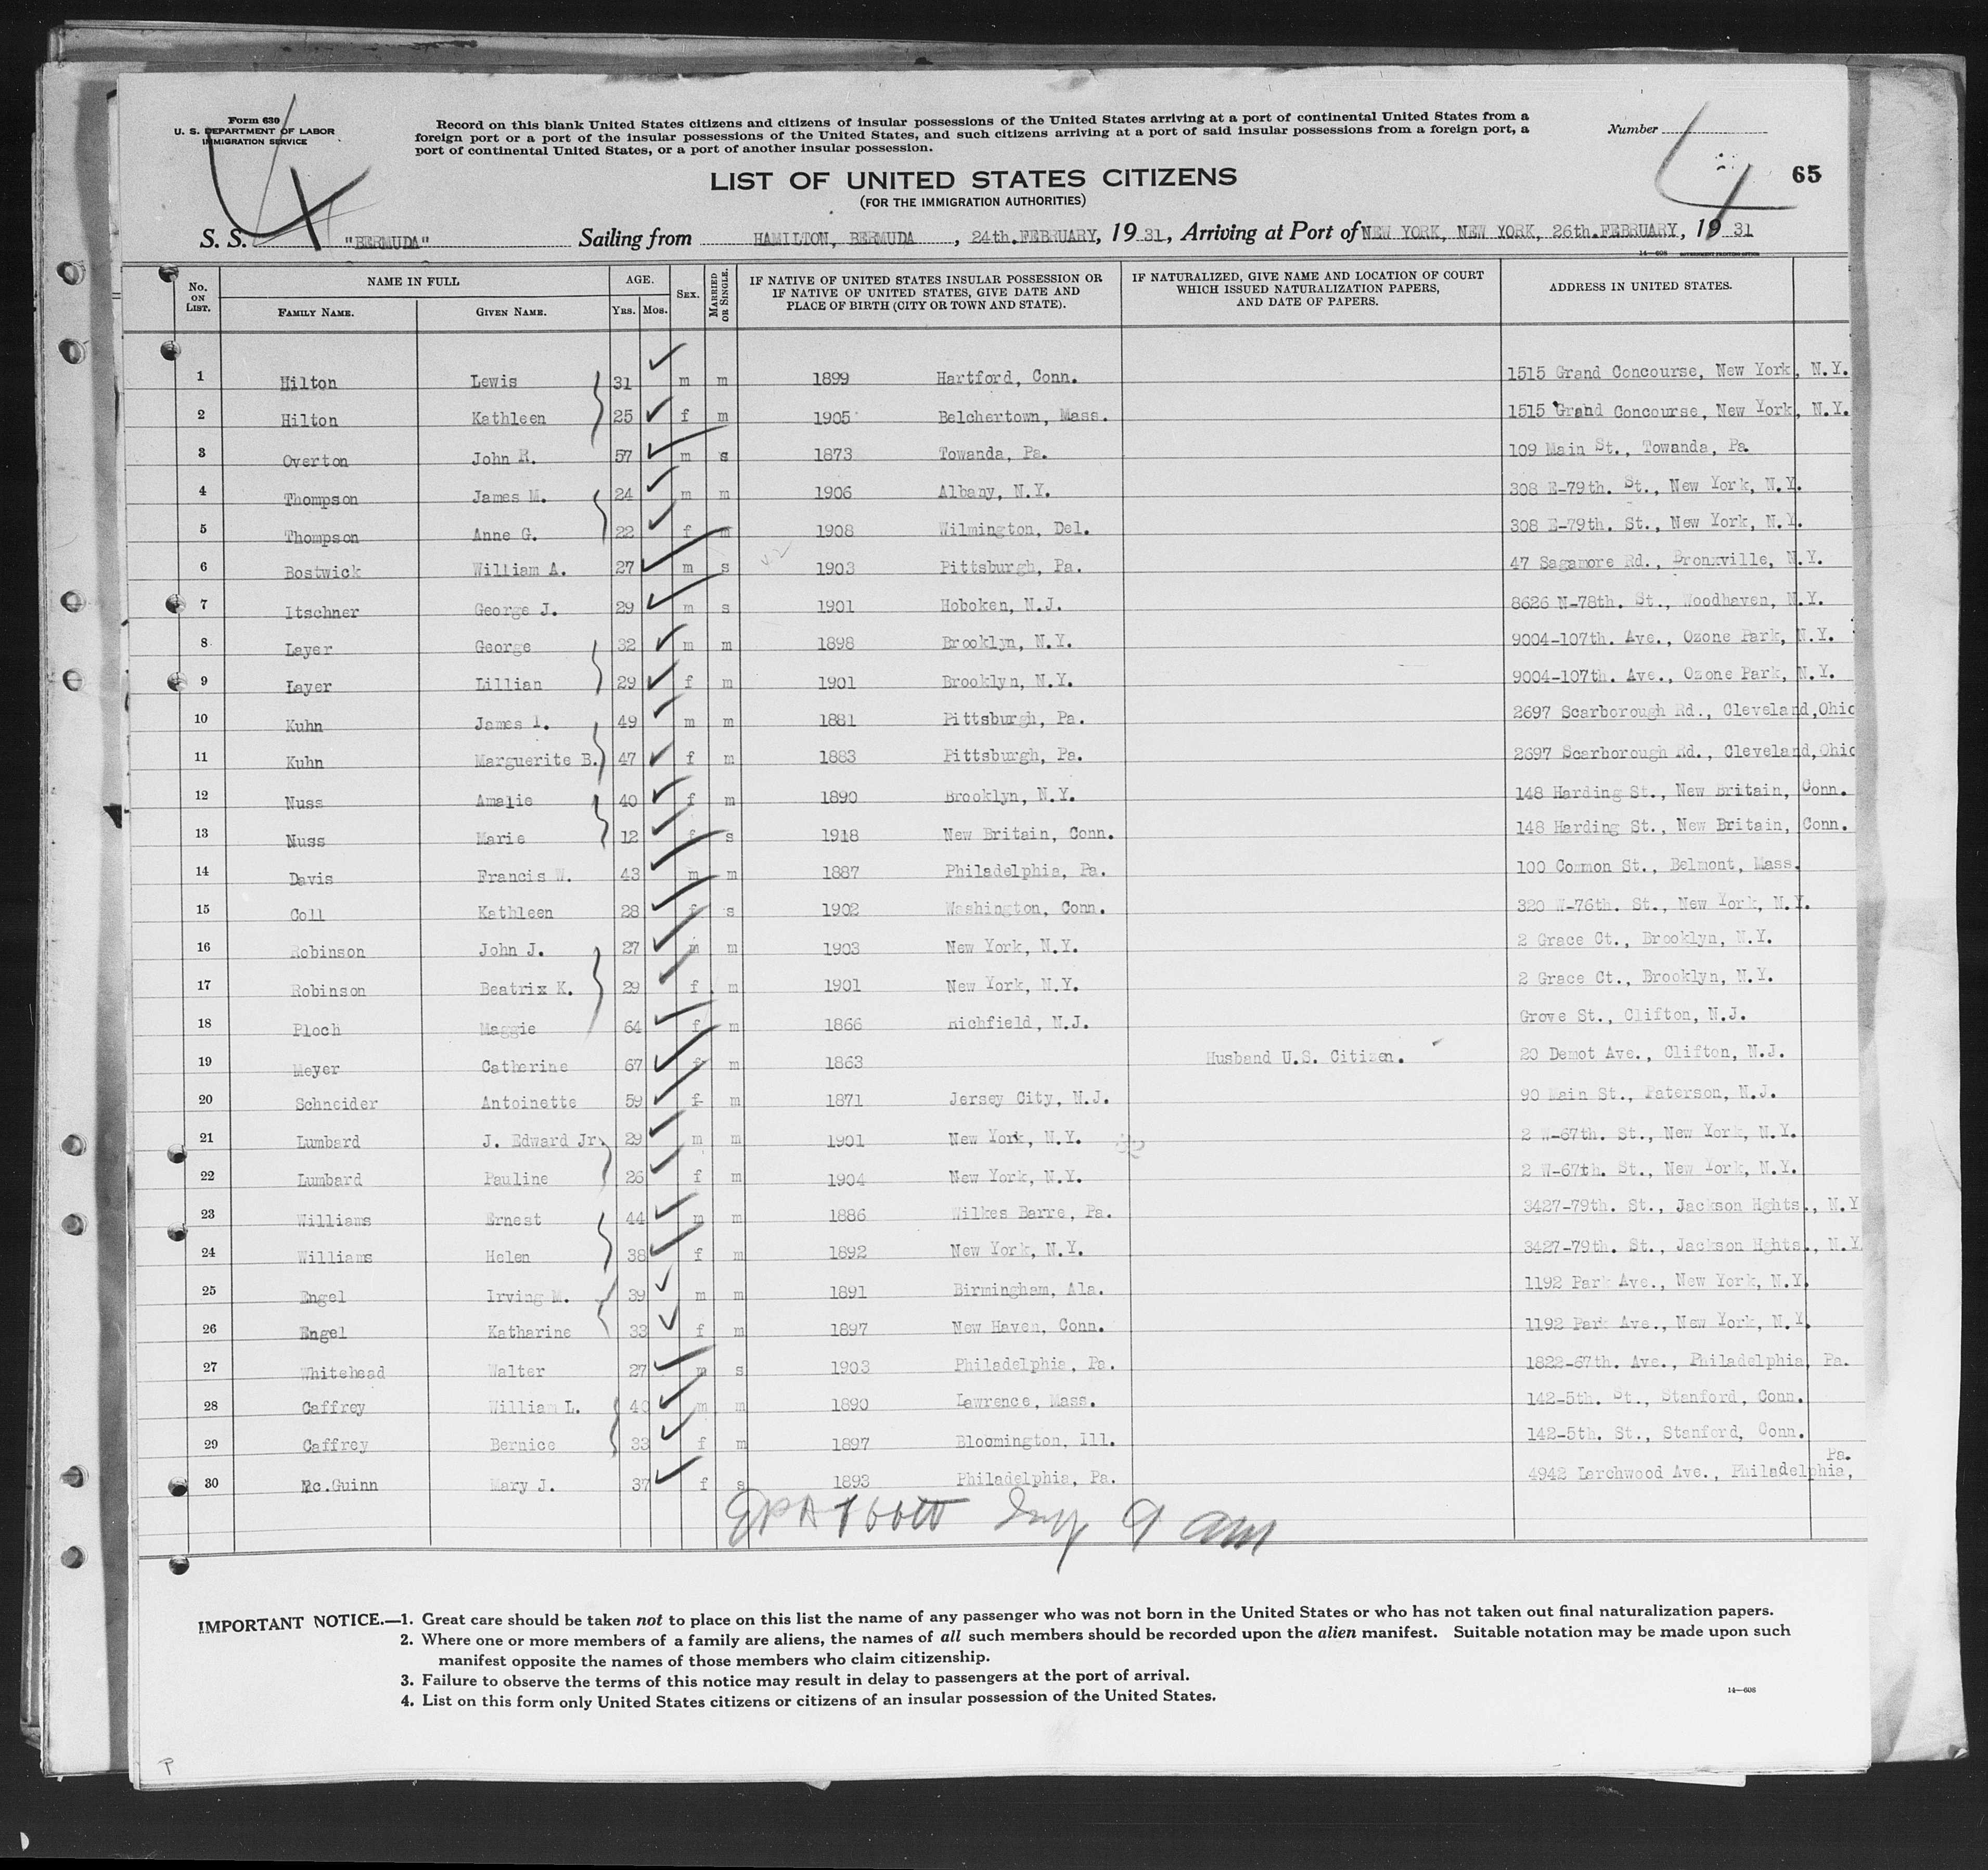 Form 630
U. S. DEPARTMENT OF LABOR
IMMIGRATION SERVICE
Record on this blank United States citizens and citizens of insular possessions of the United States arriving at a port of continental United States from a
foreign port or a port of the insular possessions of the United States, and such citizens arriving at a port of said insular possessions from a foreign port, a
port of continental United States, or a port of another insular possession.
Number
4
4
65
LIST OF UNITED STATES CITIZENS
(FOR THE IMMIGRATION AUTHORITIES)
S. S. "BERMUDA" Sailing from HAMILTON, BERMUDA, 24th. FEBRUARY, 1931, Arriving at Port of NEW YORK, NEW YORK, 26th. FEBRUARY, 1931
14—608 GOVERNMENT PRINTING OFFICE
No. ON LIST. NAME IN FULL AGE. SEX. MARRIED OR SINGLE. IF NATIVE OF UNITED STATES INSULAR POSSESSION OR IF NATIVE OF UNITED STATES, GIVE DATE AND PLACE OF BIRTH (CITY OR TOWN AND STATE). IF NATURALIZED, GIVE NAME AND LOCATION OF COURT WHICH ISSUED NATURALIZATION PAPERS, AND DATE OF PAPERS. ADDRESS IN UNITED STATES.
FAMILY NAME. GIVEN NAME. YRS. MOS.
1 Hilton Lewis 31 m m 1899 Hartford, Conn. 1515 Grand Concourse, New York, N.Y.
2 Hilton Kathleen 25 f m 1905 Belchertown, Mass. 1515 Grand Concourse, New York, N.Y.
3 Overton John R. 57 m s 1873 Towanda, Pa. 109 Main St., Towanda, Pa.
4 Thompson James M. 24 m m 1906 Albany, N.Y. 308 E-79th. St., New York, N.Y.
5 Thompson Anne G. 22 f m 1908 Wilmington, Del. 308 E-79th. St., New York, N.Y.
6 Bostwick William A. 27 m s 1903 Pittsburgh, Pa. 47 Sagamore Rd., Bronxville, N.Y.
7 Itschner George J. 29 m s 1901 Hoboken, N.J. 8626 N-78th. St., Woodhaven, N.Y.
8 Layer George 32 m m 1898 Brooklyn, N.Y. 9004-107th. Ave., Ozone Park, N.Y.
9 Layer Lillian 29 f m 1901 Brooklyn, N.Y. 9004-107th. Ave., Ozone Park, N.Y.
10 Kuhn James 49 m m 1881 Pittsburgh, Pa. 2697 Scarborough Rd., Cleveland, Ohio
11 Kuhn Marguerite B. 47 f m 1883 Pittsburgh, Pa. 2697 Scarborough Rd., Cleveland, Ohio
12 Nuss Amalie 40 f m 1890 Brooklyn, N.Y. 148 Harding St., New Britain, Conn.
13 Nuss Marie 12 f s 1918 New Britain, Conn. 148 Harding St., New Britain, Conn.
14 Davis Francis W. 43 m m 1887 Philadelphia, Pa. 100 Common St., Belmont, Mass.
15 Coll Kathleen 28 f s 1902 Washington, Conn. 320 W-76th. St., New York, N.Y.
16 Robinson John J. 27 m m 1903 New York, N.Y. 2 Grace Ct., Brooklyn, N.Y.
17 Robinson Beatrix K. 29 f m 1901 New York, N.Y. 2 Grace Ct., Brooklyn, N.Y.
18 Ploch Maggie 64 f m 1866 Richfield, N.J. Grove St., Clifton, N.J.
19 Meyer Catherine 67 f m 1863 Husband U.S. Citizen. 20 Demot Ave., Clifton, N.J.
20 Schneider Antoinette 59 f m 1871 Jersey City, N.J. 90 Main St., Paterson, N.J.
21 Lumbard J. Edward Jr. 29 m m 1901 New York, N.Y. 2 W-67th. St., New York, N.Y.
22 Lumbard Pauline 26 f m 1904 New York, N.Y. 2 W-67th. St., New York, N.Y.
23 Williams Ernest 44 m m 1886 Wilkes Barre, Pa. 3427-79th. St., Jackson Hghts., N.Y
24 Williams Helen 38 f m 1892 New York, N.Y. 3427-79th. St., Jackson Hghts., N.Y.
25 Engel Irving M. 39 m m 1891 Birmingham, Ala. 1192 Park Ave., New York, N.Y.
26 Engel Katharine 33 f m 1897 New Haven, Conn. 1192 Park Ave., New York, N.Y.
27 Whitehead Walter 27 m s 1903 Philadelphia, Pa. 1822-67th. Ave., Philadelphia, Pa.
28 Caffrey William L. 40 m m 1890 Lawrence, Mass. 142-5th. St., Stanford, Conn.
29 Caffrey Bernice 33 f m 1897 Bloomington, Ill. 142-5th. St., Stanford, Conn.
30 Mc.Guinn Mary J. 37 f s 1893 Philadelphia, Pa. 4942 Larchwood Ave., Philadelphia, Pa.
9 am
IMPORTANT NOTICE.—1. Great care should be taken not to place on this list the name of any passenger who was not born in the United States or who has not taken out final naturalization papers.
2. Where one or more members of a family are aliens, the names of all such members should be recorded upon the alien manifest. Suitable notation may be made upon such
manifest opposite the names of those members who claim citizenship.
3. Failure to observe the terms of this notice may result in delay to passengers at the port of arrival.
4. List on this form only United States citizens or citizens of an insular possession of the United States.
14—608
P